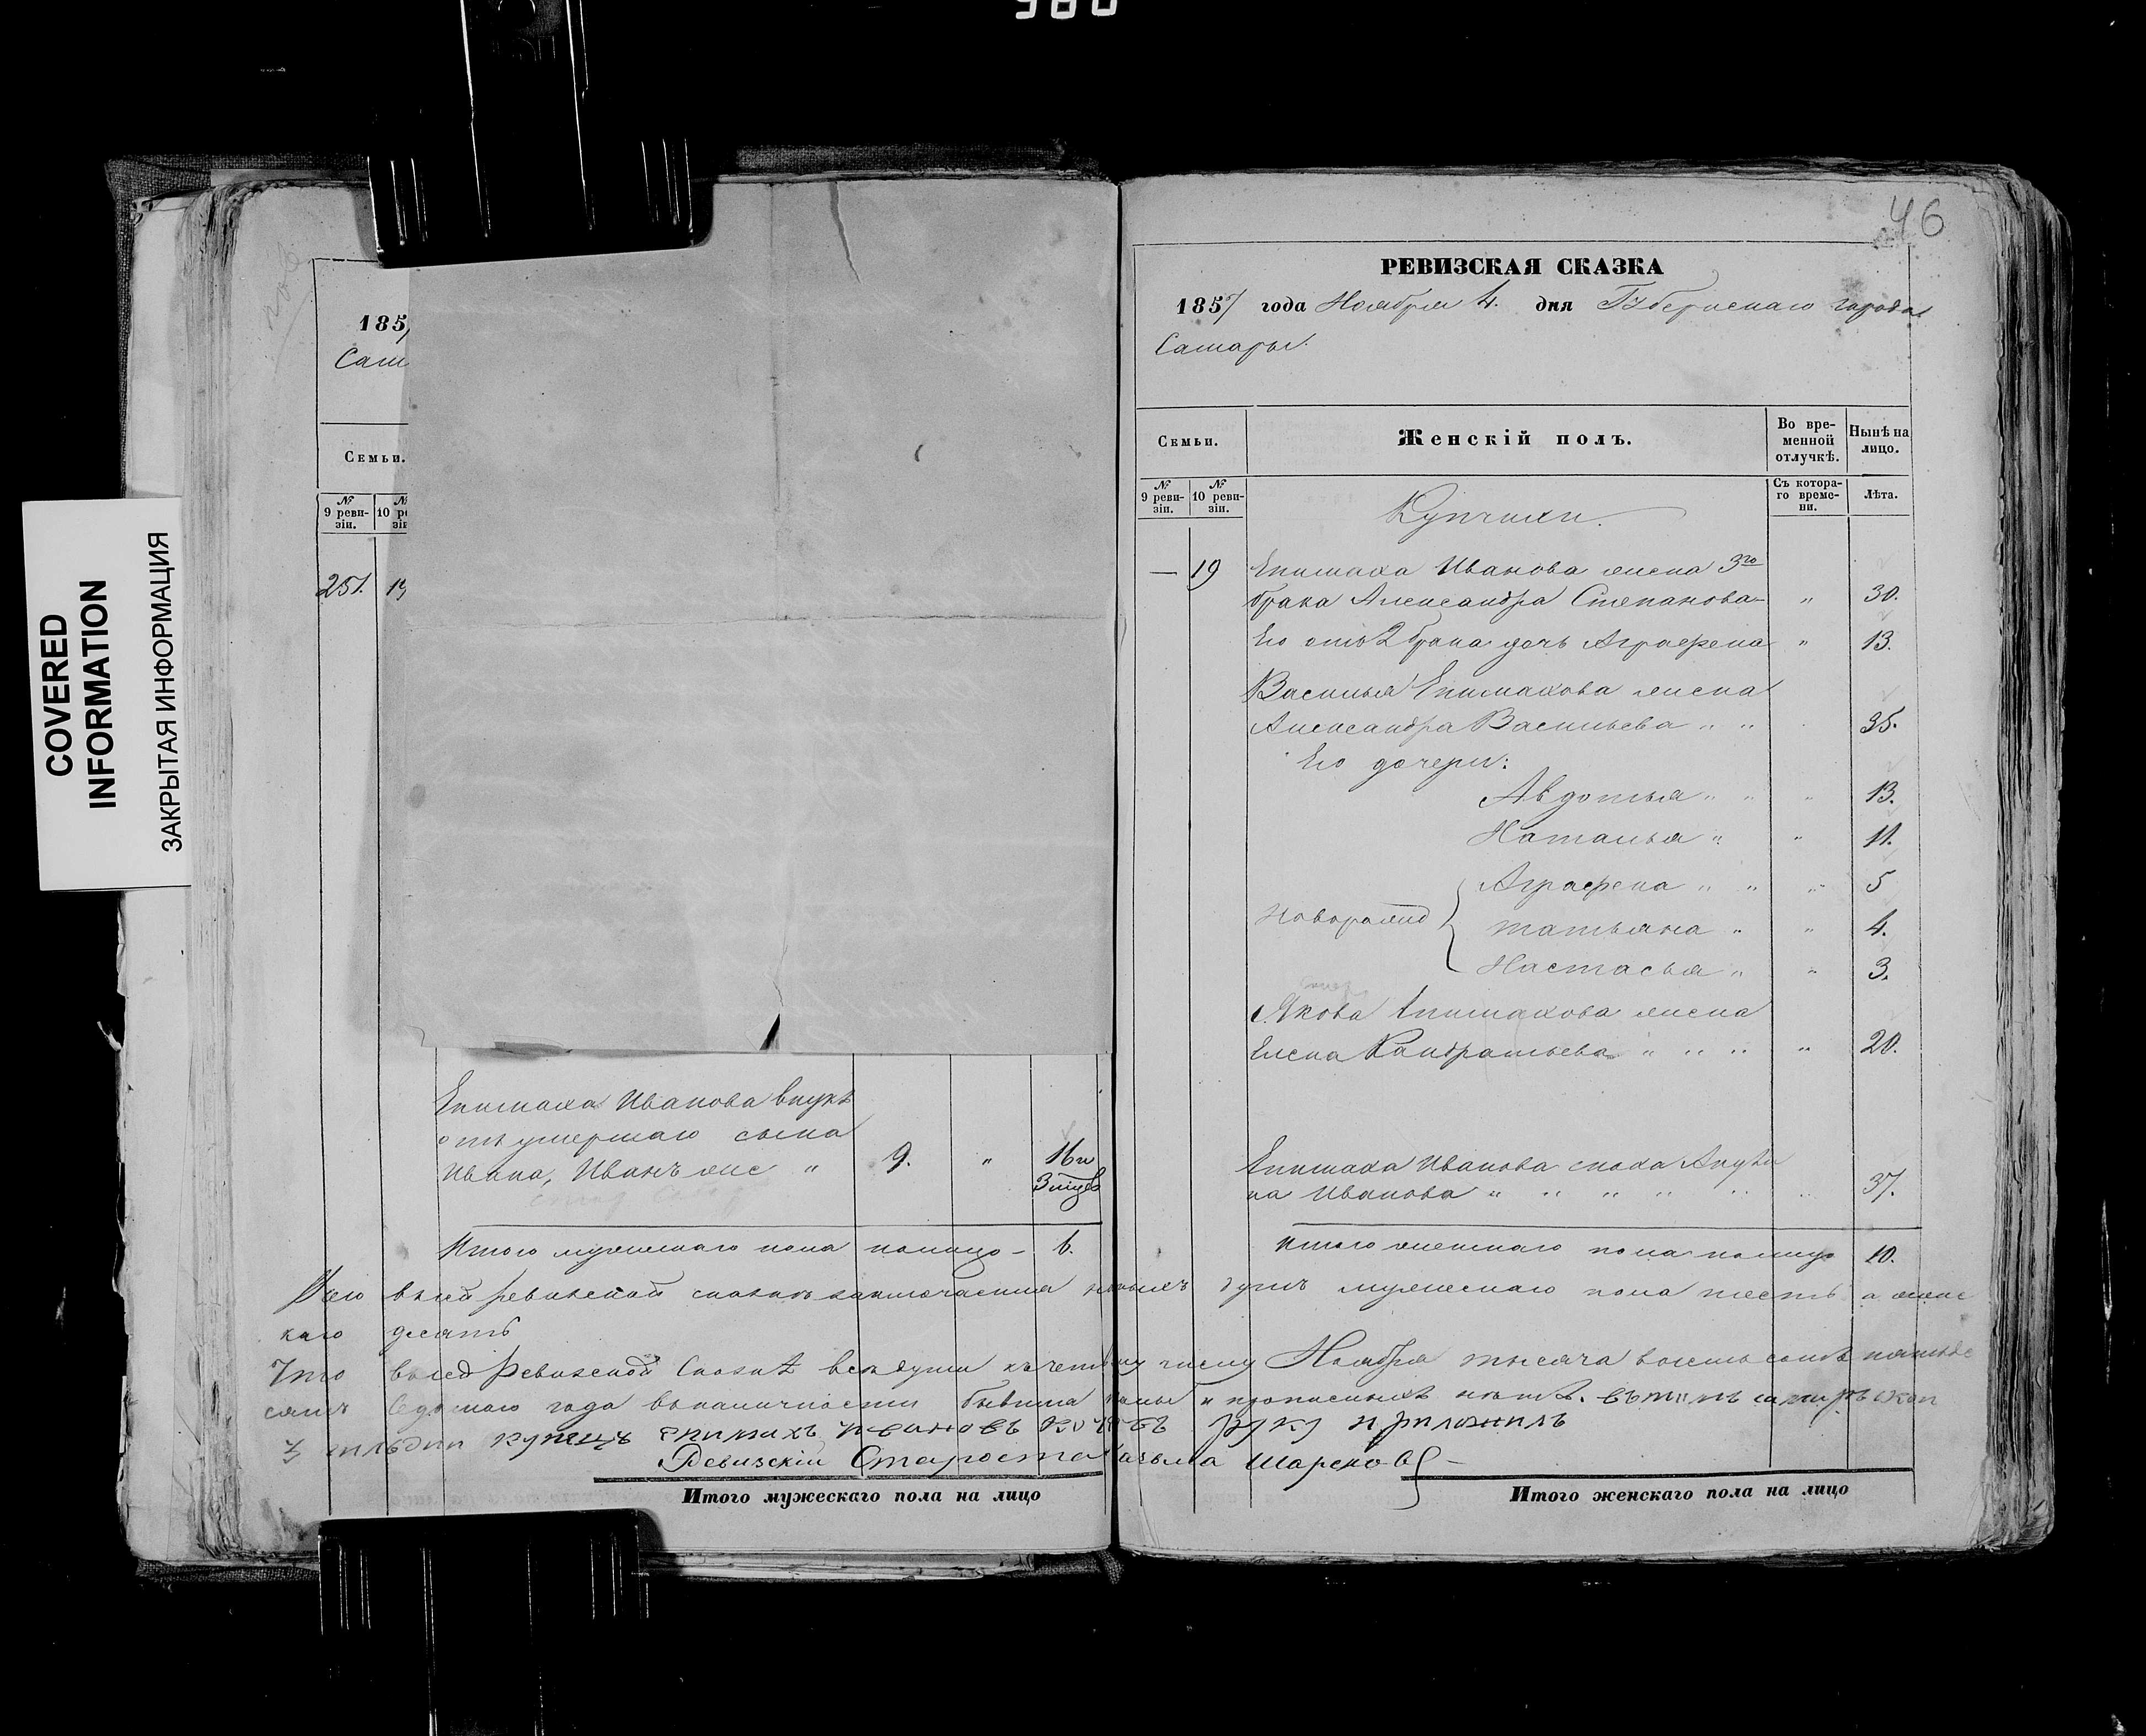 980
COVERED
INFORMATION
ЗАКРЫТАЯ ИНФОРМАЦИЯ
185
Сам
Семьи.
№ 9 реви-зіи.
№ 10 р
251. 19
Епимаха Иванова внукъ
отъ умершаго сына
Ивана, Иванъ же " 9. " 16 и
3 мѣс
Итого мужескаго пола налицо – 6.
46
РЕВИЗСКАЯ СКАЗКА
1857 года Ноября 4. дня Губернскаго города
Самары.
Семьи.
Женскій полъ.
Во вре-менной отлучкѣ.
Нынѣ на лицо.
№ 9 реви-зіи.
№ 10 реви-зіи.
Съ котора-го време-ни.
Лѣта.
Купчихи.
— 19 Епимаха Иванова жена 3го
брака Александра Степанова " 30.
Его отъ 2 брака дочь Аграфена " 13.
Василья Епимахова жена
Александра Васильева " " 35.
Его дочери:
Авдотья " " " 13.
Наталья " " 11.
Аграфена " " " 5
Новорожд Татьяна " " 4.
Настасья " " 3.
Якова Епимахова жена
Елена Кандратьева " " " " 20.
Епимаха Иванова сноха
на Иванова " " " " " " 37.
Итого женскаго пола налицо 10.
въ сей ревизской сказкѣ заключается душъ мужескаго пола шесть а женс
каго десять
Что въ сей Ревизской Сказкѣ всѣ души къ числу Ноября тысяча восемь сотъ пятьде
сятъ седьмаго года въ наличности бывшія и прописныхъ нѣтъ. въ томъ
3 гильдии купецъ епимахъ ивановъ руку приложилъ
Ревизскій Староста Шареновъ
Итого мужескаго пола на лицо
Итого женскаго пола на лицо